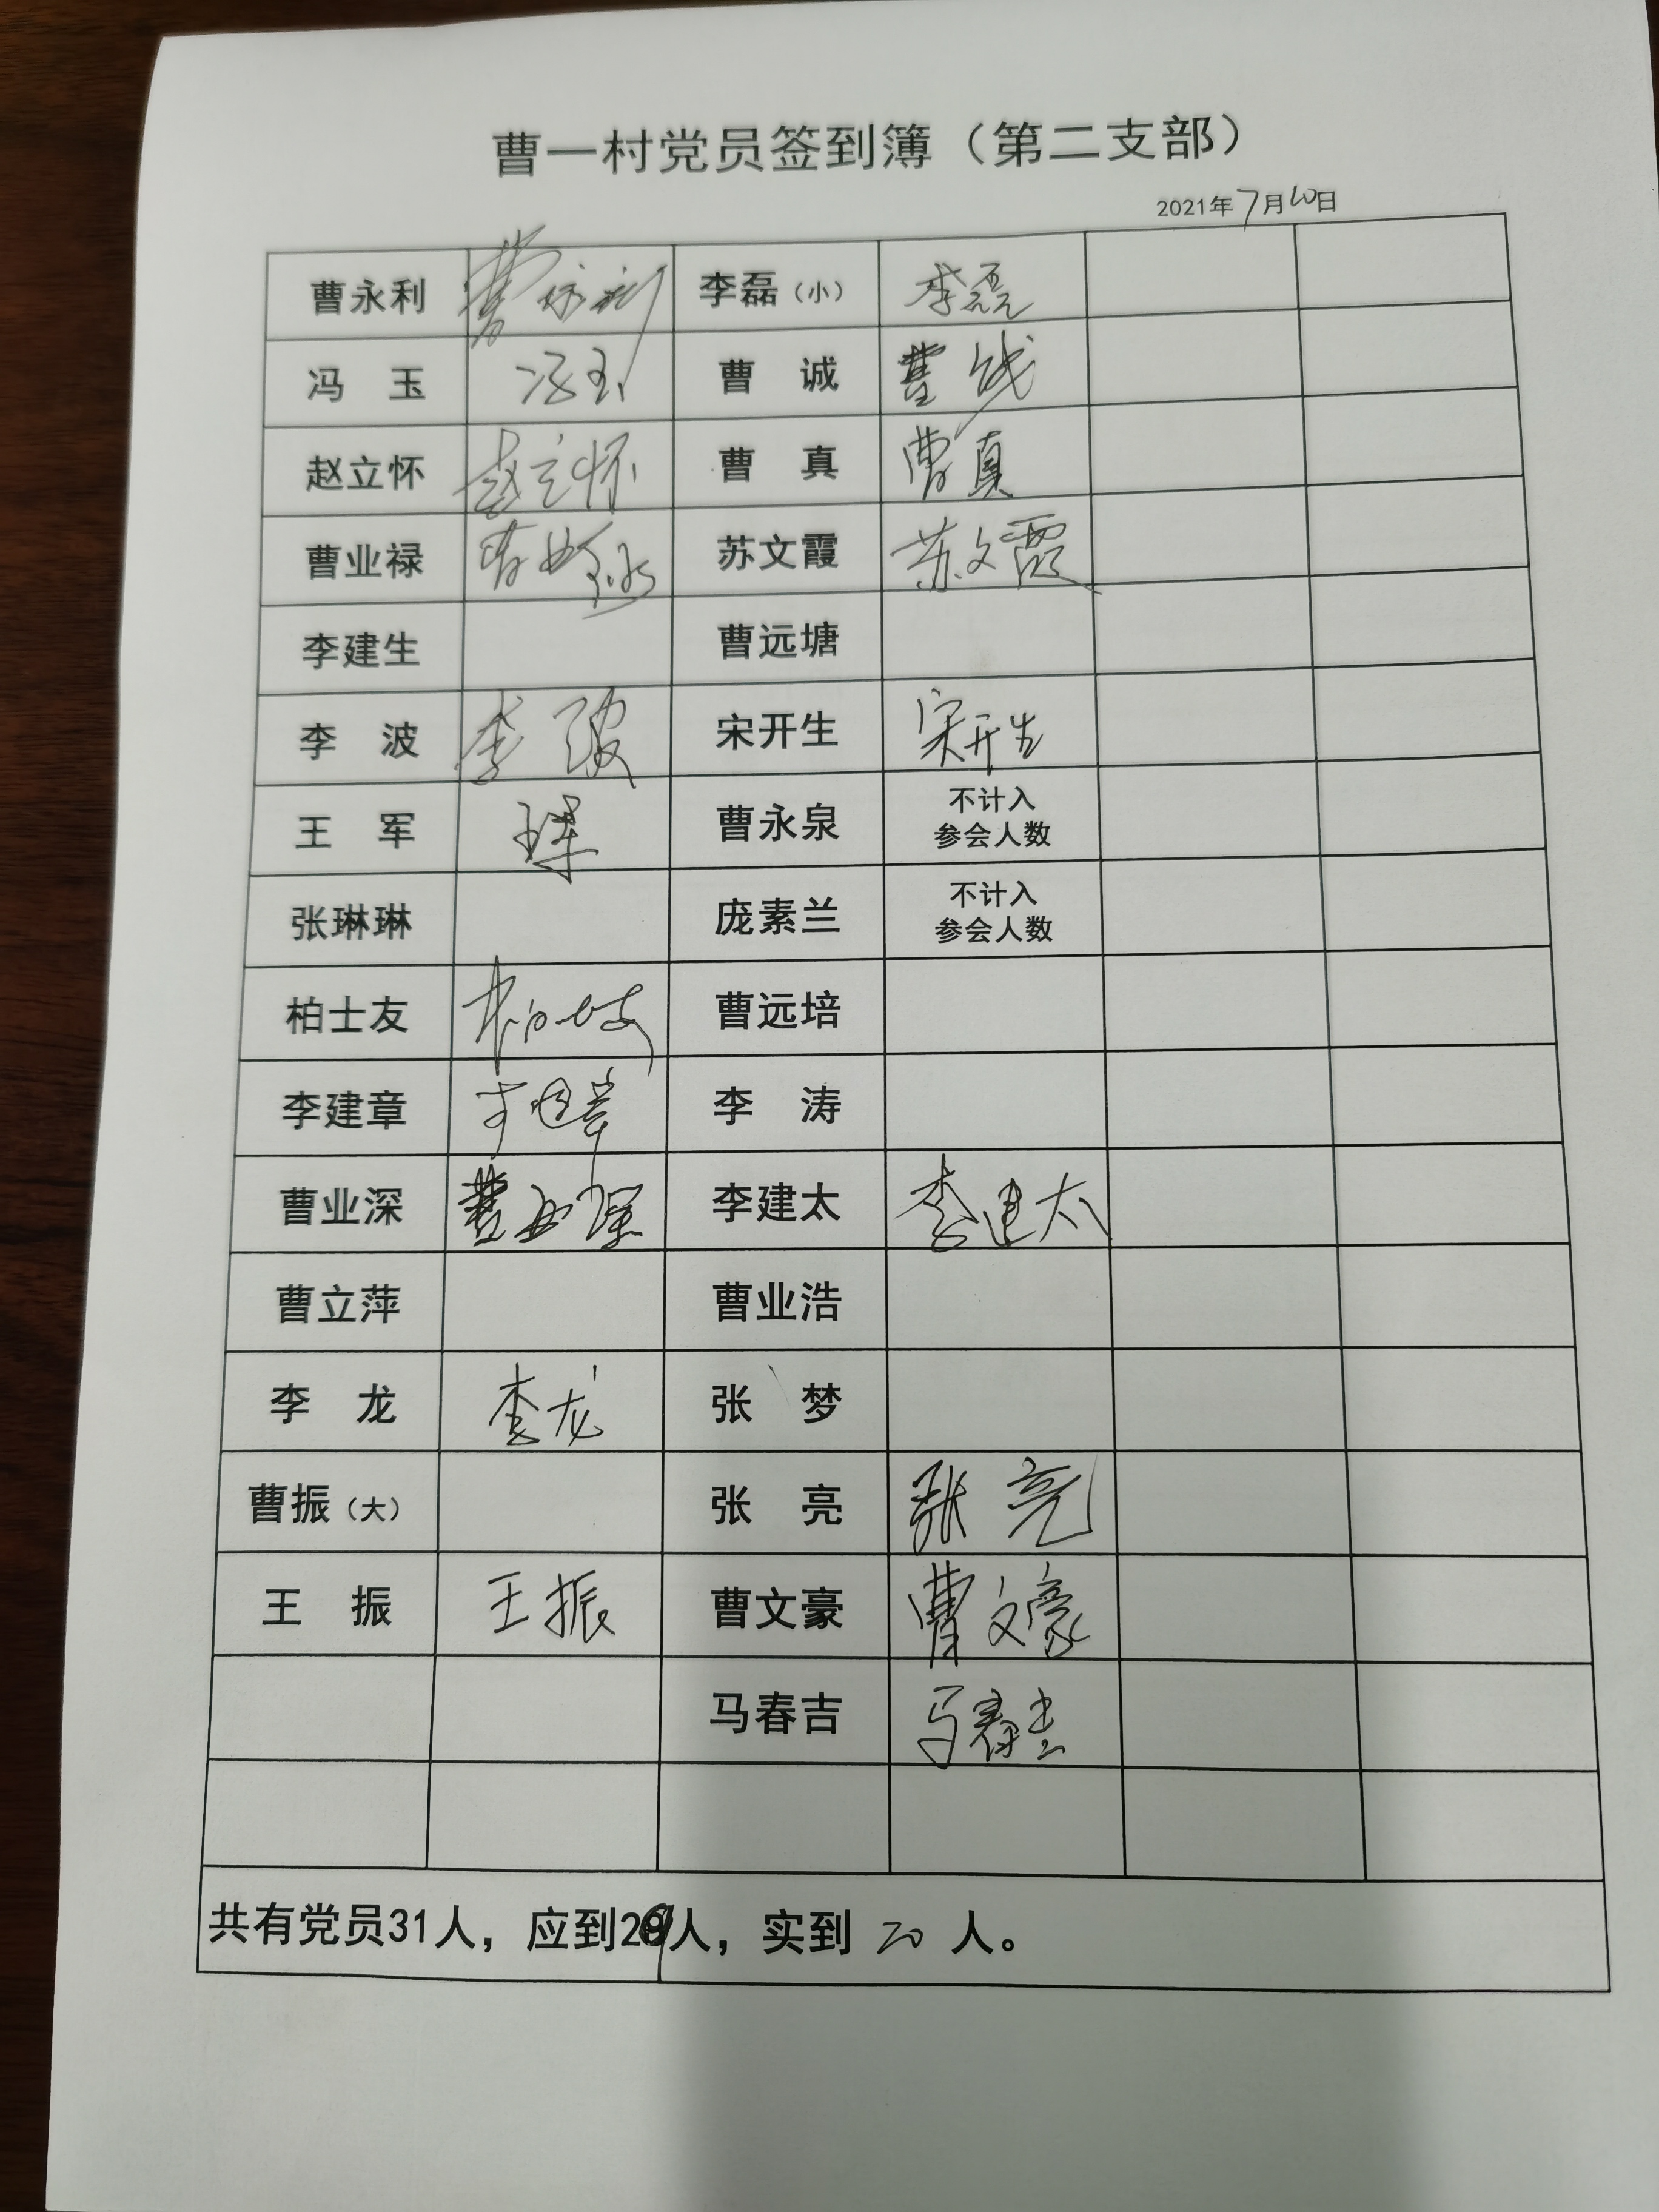 曹一村党员签到簿（第二支部）
2021年7月10日
曹永利 曹永利 李磊（小） 李磊
冯 玉 冯玉 曹 诚 曹诚
赵立怀 赵立怀 曹 真 曹真
曹业禄 曹业禄 苏文霞 苏文霞
李建生 曹远塘
李 波 李波 宋开生 宋开生
王 军 王军 曹永泉 不计入
参会人数
张琳琳 庞素兰 不计入
参会人数
柏士友 柏士友 曹远培
李建章 李建章 李 涛
曹业深 曹业深 李建太 李建太
曹立萍 曹业浩
李 龙 李龙 张 梦
曹振（大） 张 亮 张亮
王 振 王振 曹文豪 曹文豪
马春吉 马春吉
共有党员31人，应到29人，实到 20 人。